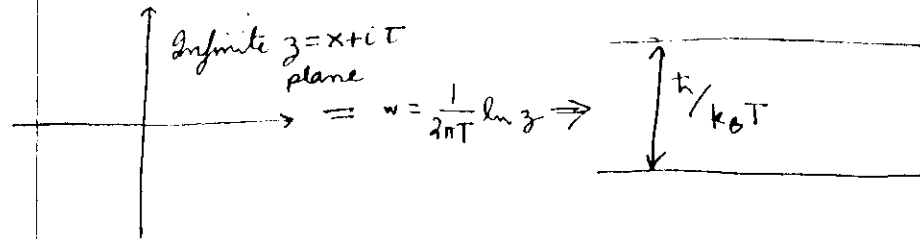 Infinite z = x + i τ
plane
= w = 1/2πT ln z ⇒
ħ/k_B T